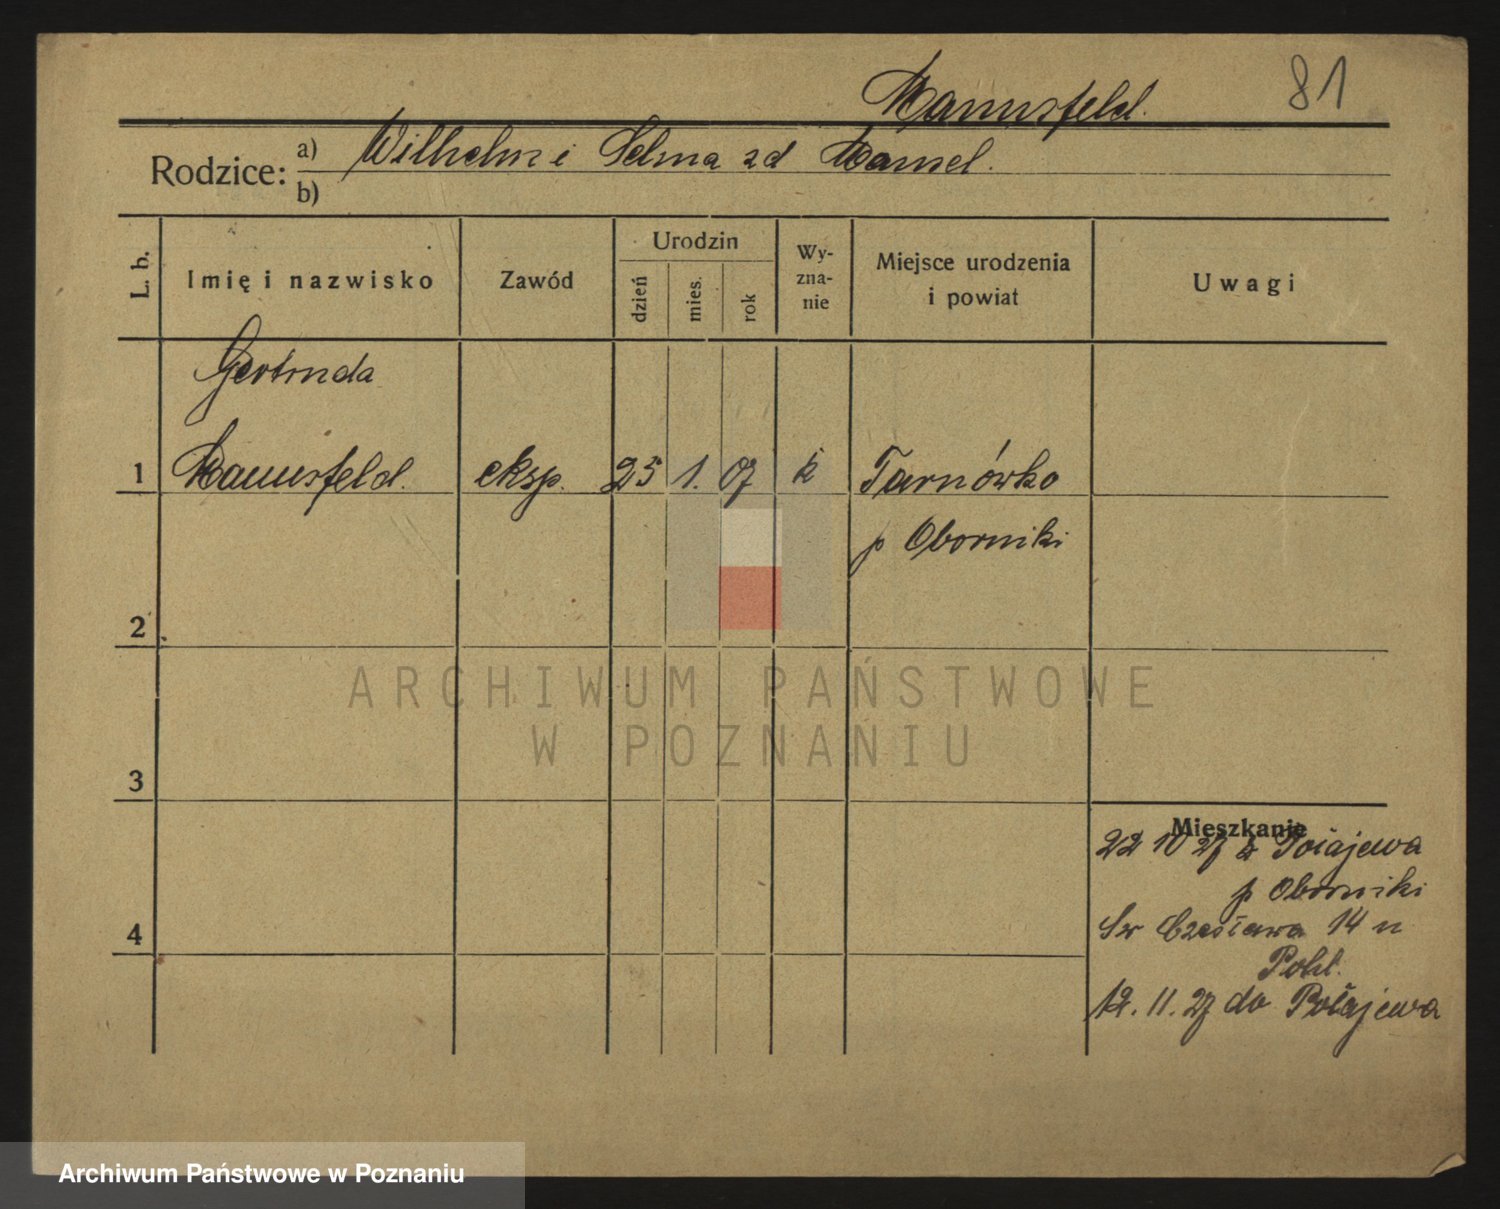 Mannsfeld. 81
Rodzice: a) Wilhelm i Selma zd Mamel.
b)
L. b. Imię i nazwisko Zawód Urodzin dzień mies. rok Wyznanie Miejsce urodzenia i powiat Uwagi
Gertruda
1 Mannsfeld. eksp. 25 1. 07 k Tarnówko
p Oborniki
2
ARCHIWUM PAŃSTWOWE
W POZNANIU
3
Mieszkanie
22 10 27 z Połajewa
p Oborniki
Św Czesława 14 u
4
Pohl.
12. 11. 27 do Połajewa
Archiwum Państwowe w Poznaniu